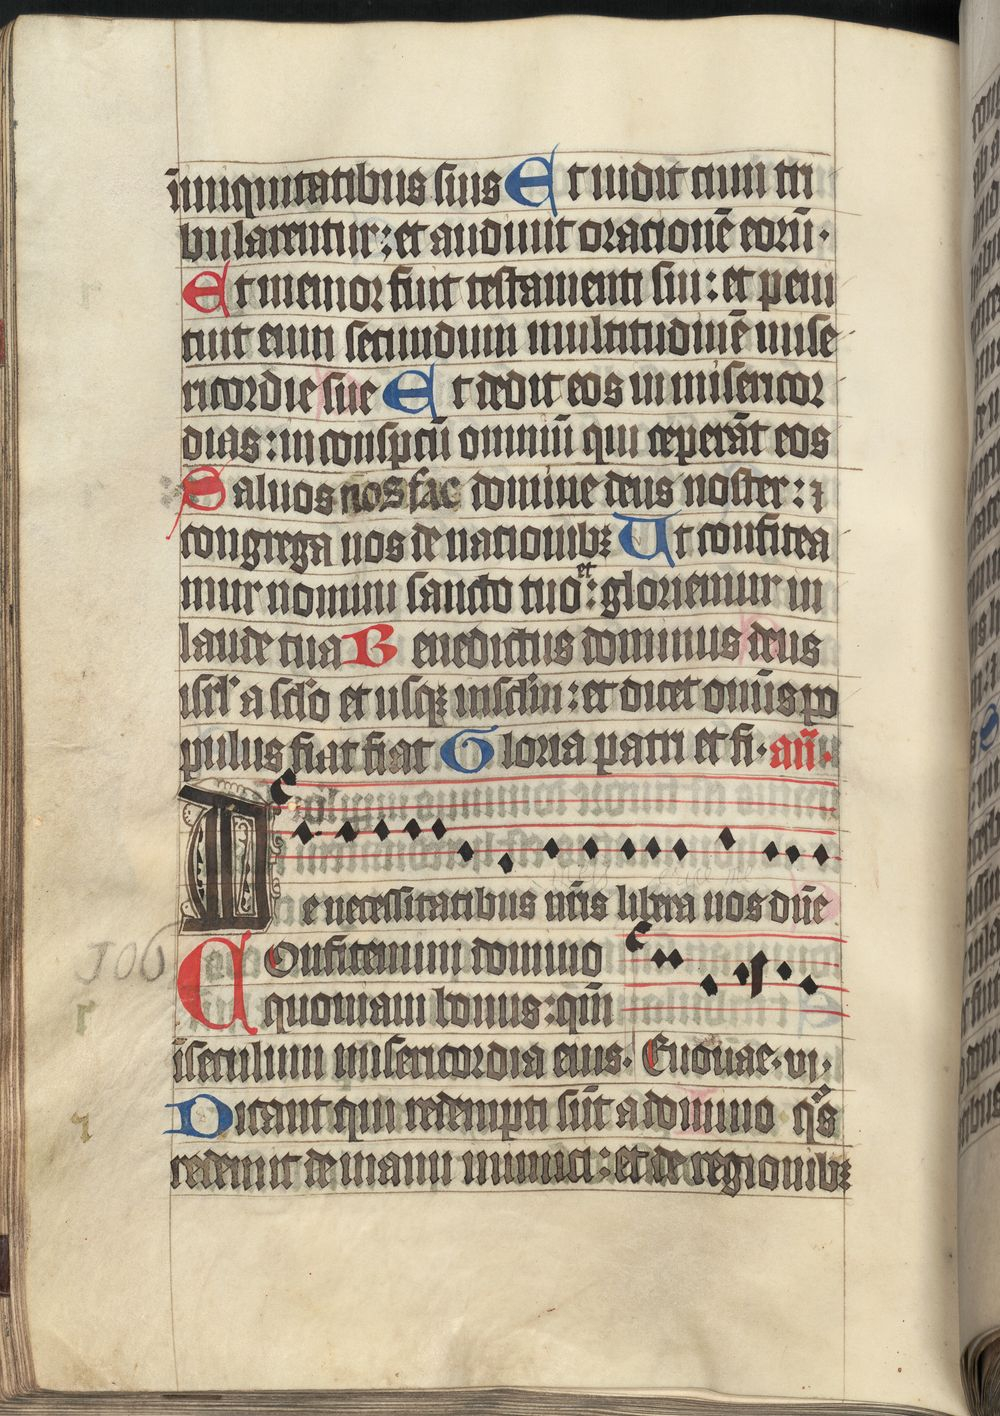 iniquitatibus suis Et uidit cum tri
bularentur: et audiuit orationē eorū.
Et memor fuit testamenti sui: et peni
tuit eum secundum multitudinē mise
ricordie sue Et dedit eos in misericor
dias: in conspctū omniū qui ceperāt eos
Saluos nos fac domine deus noster: ⁊
congrega nos de nationibꝫ Ut confitea
mur nomini sancto tuo et: gloriemur in
laude tua Benedictus dominus deus
isrl' a sclo et usqꝫ in sclm: et dicet om̄is po
pulus fiat fiat Gloria patri et fi. an̄.
De necessitatibus nr̄is libera nos dn̄e
106
Confitemini domino
quoniam bonus: qm̄
i seculum misericordia eius. Euouae. vj.
Dicant qui redempti sūt a domino qͦs
redemit de manu inimici: et de regionibꝫ